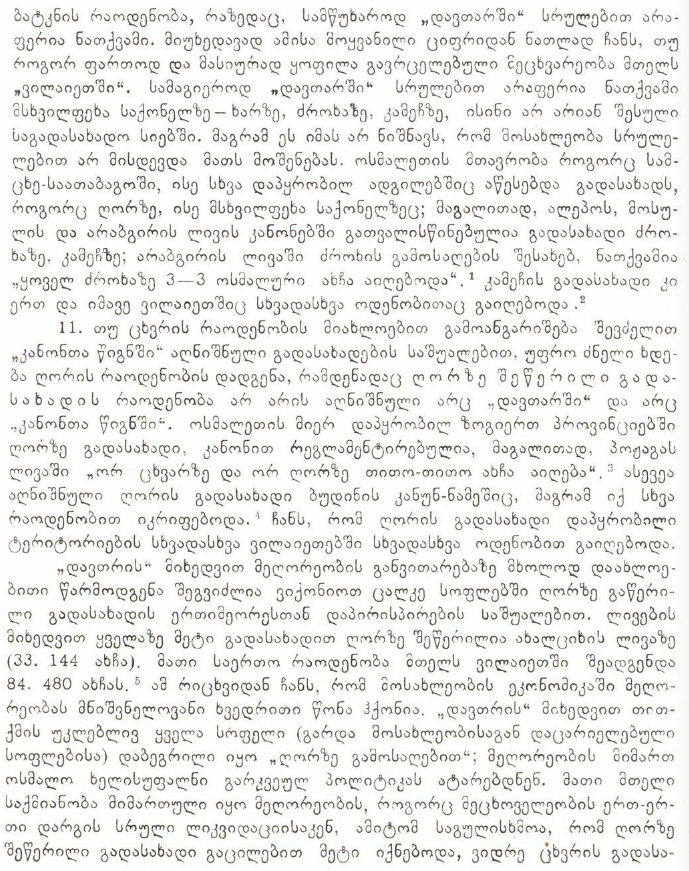 ბატკნის რაოდენობა, რაზედაც, სამწუხაროდ „დავთარში“ სრულებით არა-
ფერია ნათქვამი. მიუხედავად ამისა მოყვანილი ციფრიდან ნათლად ჩანს, თუ
როგორ ფართოდ და მასიურად ყოფილა გავრცელებული მეცხვარეობა მთელს
„ვილაიეთში“. სამაგიეროდ „დავთარში“ სრულებით არაფერია ნათქვამი
მსხვილფეხა საქონელზე – ხარზე, ძროხაზე, კამეჩზე, ისინი არ არიან შესული
საგადასახადო სიებში. მაგრამ ეს იმას არ ნიშნავს, რომ მოსახლეობა სრულე-
ლებით არ მისდევდა მათს მოშენებას. ოსმალეთის მთავრობა როგორც სამ-
ცხე-საათაბაგოში, ისე სხვა დაპყრობილ ადგილებშიც აწესებდა გადასახადს,
როგორც ღორზე, ისე მსხვილფეხა საქონელზეც; მაგალითად, ალეპოს, მოსუ-
ლის და არაბგირის ლივის კანონებში გათვალისწინებულია გადასახადი ძრო-
ხაზე, კამეჩზე; არაბგირის ლივაში ძროხის გამოსაღების შესახებ, ნათქვამია
„ყოველ ძროხაზე 3—3 ოსმალური ახჩა აიღებოდა“.¹ კამეჩის გადასახადი კი
ერთ და იმავე ვილაიეთშიც სხვადასხვა ოდენობითაც გაიღებოდა.²
11. თუ ცხვრის რაოდენობის მიახლოებით გამოანგარიშება შევძელით
„კანონთა წიგნში“ აღნიშნული გადასახადების საშუალებით, უფრო ძნელი ხდე-
ბა ღორის რაოდენობის დადგენა, რამდენადაც ღორზე შეწერილი გადა-
სახადის რაოდენობა არ არის აღნიშნული არც „დავთარში“ და არც
„კანონთა წიგნში“. ოსმალეთის მიერ დაპყრობილ ზოგიერთ პროვინციებში
ღორზე გადასახადი, კანონით რეგლამენტირებულია, მაგალითად, პოჟაგას
ლივაში „ორ ცხვარზე და ორ ღორზე თითო-თითო ახჩა აიღება“.³ ასევეა
აღნიშნული ღორის გადასახადი ბუდინის კანუნ-ნამეშიც, მაგრამ იქ სხვა
რაოდენობით იკრიფებოდა.⁴ ჩანს, რომ ღორის გადასახადი დაპყრობილი
ტერიტორიების სხვადასხვა ვილაიეთებში სხვადასხვა ოდენობით გაიღებოდა.
„დავთრის“ მიხედვით მეღორეობის განვითარებაზე მხოლოდ დაახლოე-
ბითი წარმოდგენა შეგვიძლია ვიქონიოთ ცალკე სოფლებში ღორზე გაწერი-
ლი გადასახადის ერთიმეორესთან დაპირისპირების საშუალებით. ლივების
მიხედვით ყველაზე მეტი გადასახადით ღორზე შეწერილია ახალციხის ლივაზე
(33. 144 ახჩა). მათი საერთო რაოდენობა მთელს ვილაიეთში შეადგენდა
84. 480 ახჩას.⁵ ამ რიცხვიდან ჩანს, რომ მოსახლეობის ეკონომიკაში მეღო-
რეობას მნიშვნელოვანი ხვედრითი წონა ჰქონია. „დავთრის“ მიხედვით თით-
ქმის უკლებლივ ყველა სოფელი (გარდა მოსახლეობისაგან დაცარიელებული
სოფლებისა) დაბეგრილი იყო „ღორზე გამოსაღებით“; მეღორეობის მიმართ
ოსმალო ხელისუფალნი გარკვეულ პოლიტიკას ატარებდნენ. მათი მთელი
საქმიანობა მიმართული იყო მეღორეობის, როგორც მეცხოველეობის ერთ-ერ-
თი დარგის სრული ლიკვიდაციისაკენ, ამიტომ საგულისხმოა, რომ ღორზე
შეწერილი გადასახადი გაცილებით მეტი იქნებოდა, ვიდრე ცხვრის გადასა-